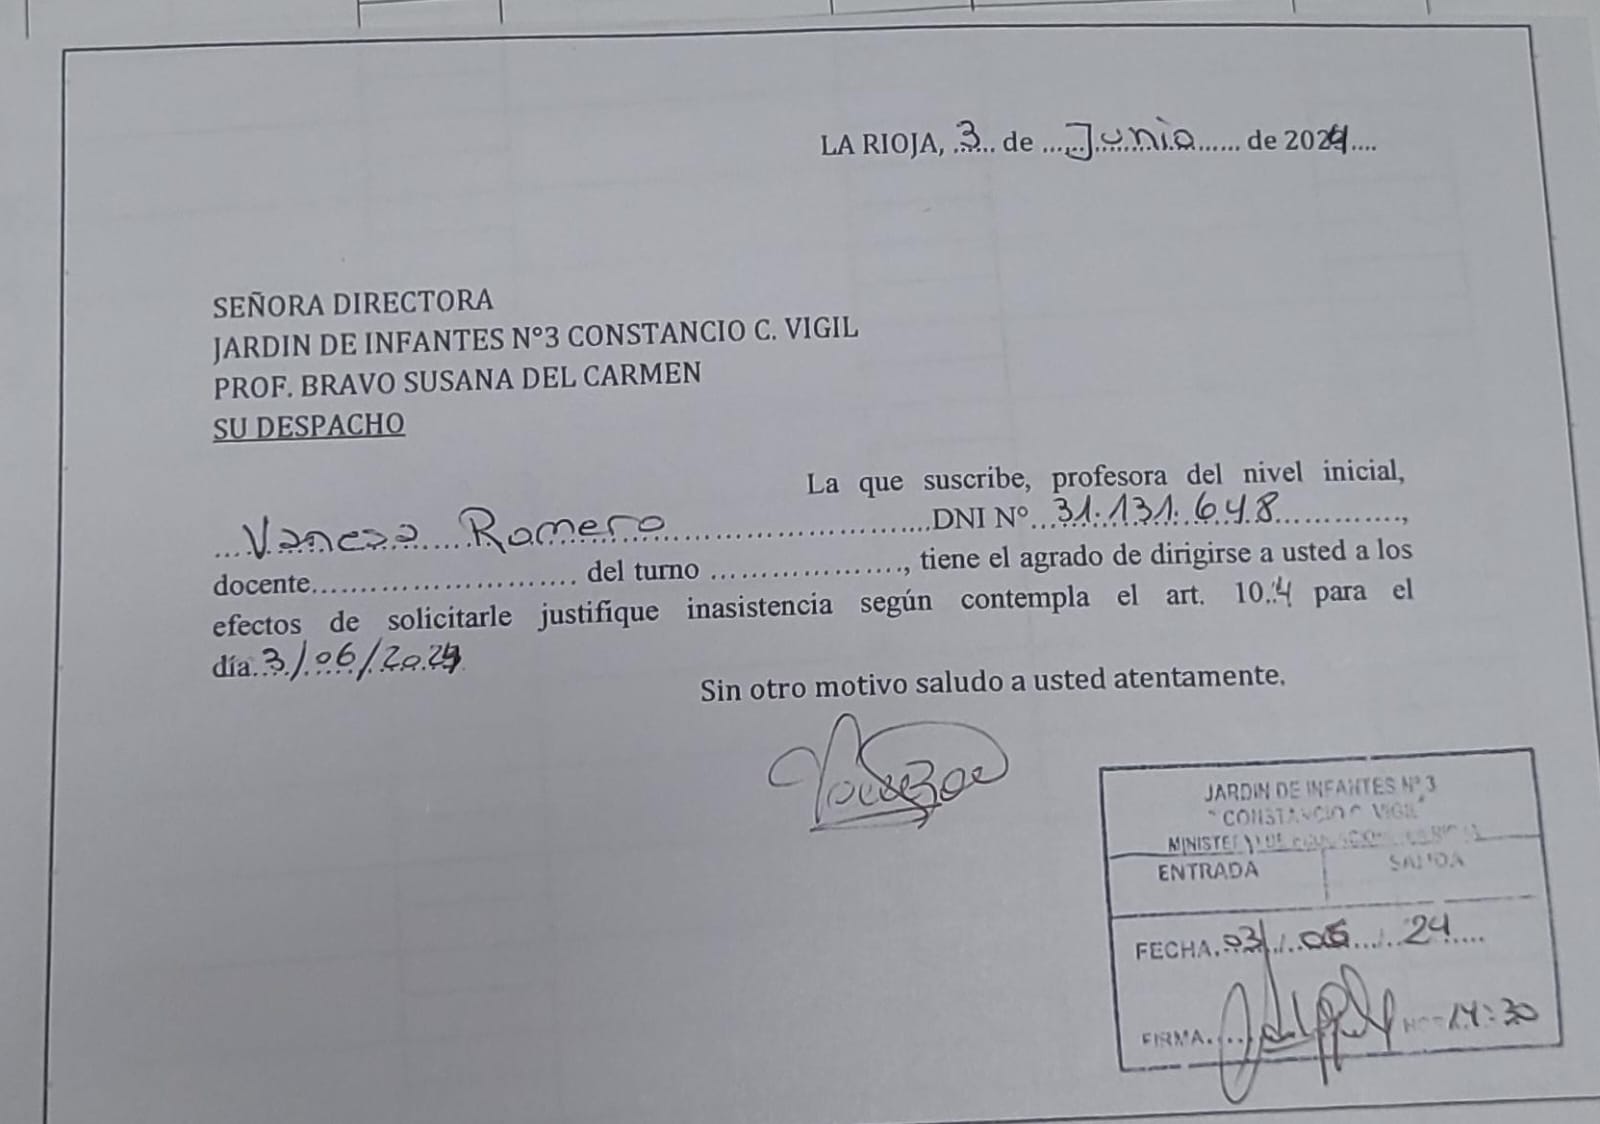 LA RIOJA, 3 de Junio de 2024
SEÑORA DIRECTORA
JARDIN DE INFANTES N°3 CONSTANCIO C. VIGIL
PROF. BRAVO SUSANA DEL CARMEN
SU DESPACHO
La que suscribe, profesora del nivel inicial,
Vanesa Romero DNI N° 31.131.648,
docente........................... del turno ...................., tiene el agrado de dirigirse a usted a los
efectos de solicitarle justifique inasistencia según contempla el art. 10.4 para el
día 3/06/2024
Sin otro motivo saludo a usted atentamente.
JARDIN DE INFANTES N° 3
"CONSTANCIO C. VIGIL"
ENTRADA SALIDA
FECHA 03/06/24
FIRMA 14:30